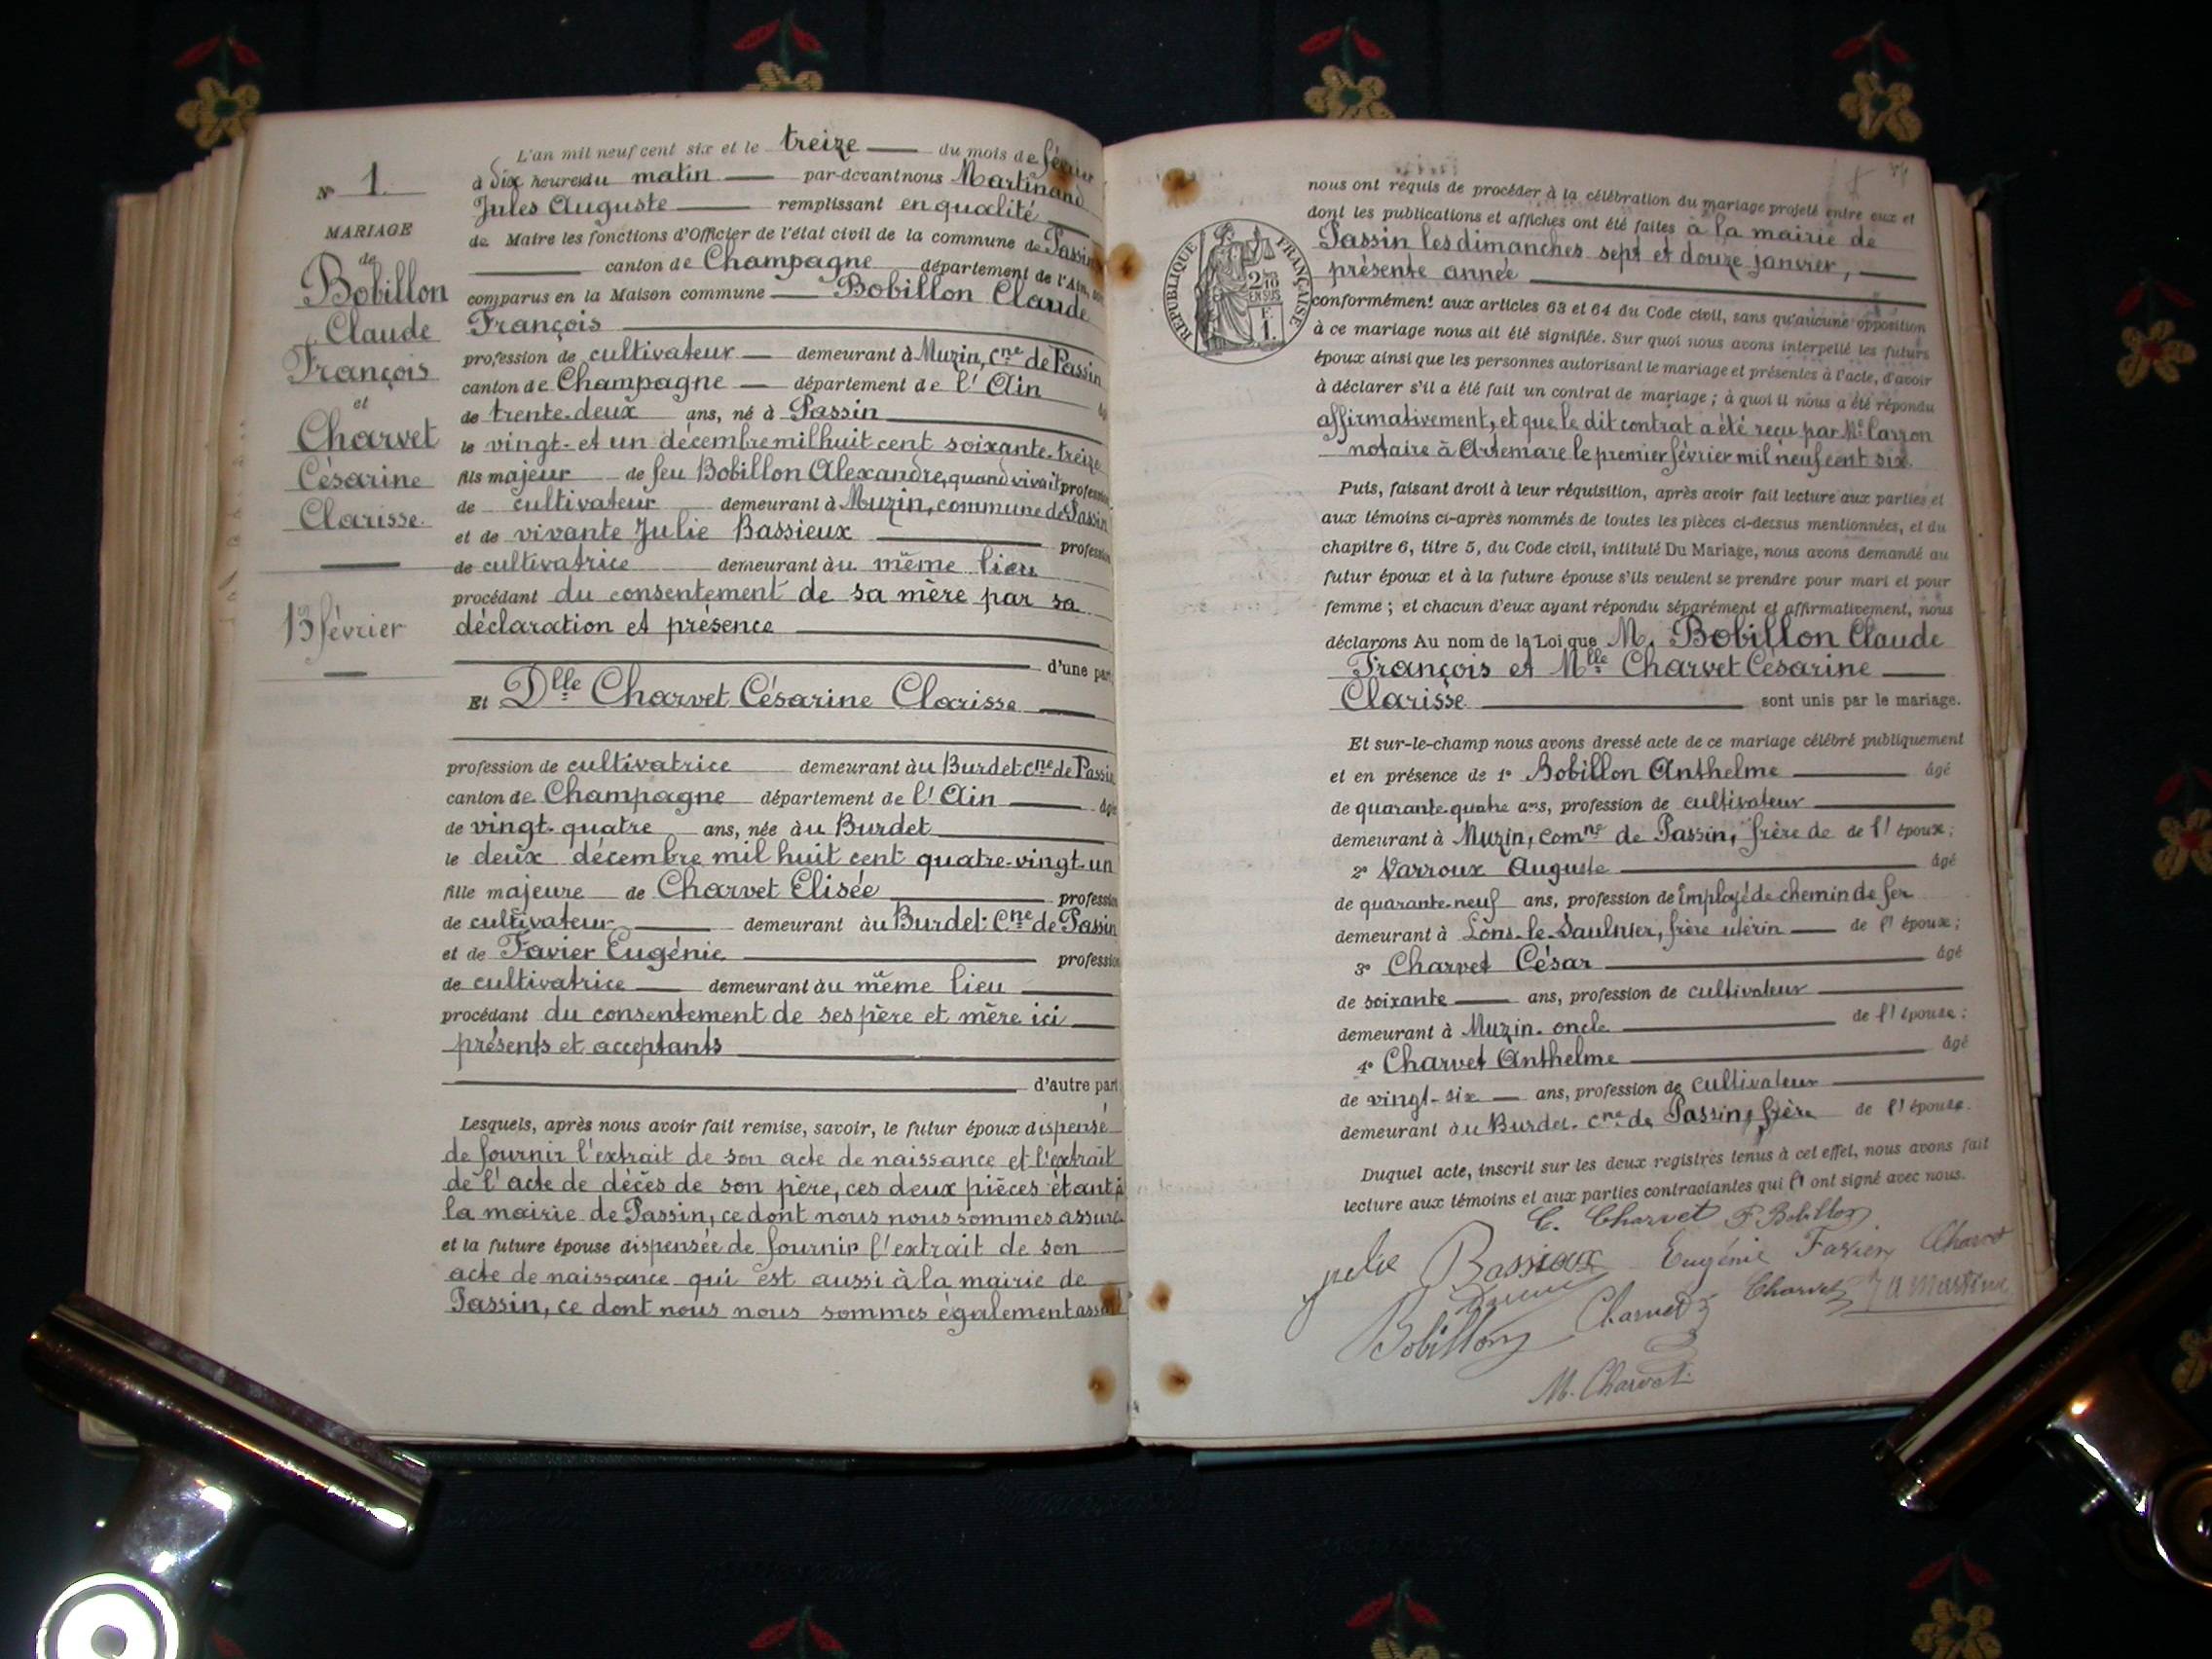 N° 1.
MARIAGE
de
Bobillon
Claude
François
et
Charvet
Césarine
Clarisse.
13 février
L'an mil neuf cent six et le treize du mois de février
à dix heures du matin par-devant nous Martinand
Jules Auguste remplissant en qualité
de Maire les fonctions d'Officier de l'état civil de la commune de Passin
canton de Champagne département de l'Ain, sont
comparus en la Maison commune Bobillon Claude
François
profession de cultivateur demeurant à Muzin, cne de Passin
canton de Champagne département de l'Ain
de trente-deux ans, né à Passin
le vingt-et un décembre mil huit cent soixante-treize
fils majeur de feu Bobillon Alexandre, quand vivait profession
de cultivateur demeurant à Muzin, commune de Passin
et de vivante Julie Bassieux profession
de cultivatrice demeurant au même lieu
procédant du consentement de sa mère par sa
déclaration et présence
d'une part
Et Dlle Charvet Césarine Clarisse
profession de cultivatrice demeurant àu Burdet cne de Passin
canton de Champagne département de l'Ain âgée
de vingt-quatre ans, née àu Burdet
le deux décembre mil huit cent quatre-vingt-un
fille majeure de Charvet Elisée profession
de cultivateur demeurant àu Burdet Cne de Passin
et de Favier Eugénie profession
de cultivatrice demeurant àu même lieu
procédant du consentement de ses père et mère ici
présents et acceptants
d'autre part
Lesquels, après nous avoir fait remise, savoir, le futur époux dispensé
de fournir l'extrait de son acte de naissance et l'extrait
de l'acte de décès de son père, ces deux pièces étant à
la mairie de Passin, ce dont nous nous sommes assuré
et la future épouse dispensée de fournir l'extrait de son
acte de naissance qui est aussi à la mairie de
Passin, ce dont nous nous sommes également assuré
RÉPUBLIQUE FRANÇAISE
2/10
EN SUS
F.
1.
nous ont requis de procéder à la célébration du mariage projeté entre eux et
dont les publications et affiches ont été faites à la mairie de
Passin les dimanches sept et douze janvier,
présente année
conformément aux articles 63 et 64 du Code civil, sans qu'aucune opposition
à ce mariage nous ait été signifiée. Sur quoi nous avons interpellé les futurs
époux ainsi que les personnes autorisant le mariage et présentes à l'acte, d'avoir
à déclarer s'il a été fait un contrat de mariage ; à quoi il nous a été répondu
affirmativement, et que le dit contrat a été reçu par Me Carron
notaire à Artemare le premier février mil neuf cent six
Puis, faisant droit à leur réquisition, après avoir fait lecture aux parties et
aux témoins ci-après nommés de toutes les pièces ci-dessus mentionnées, et du
chapitre 6, titre 5, du Code civil, intitulé Du Mariage, nous avons demandé au
futur époux et à la future épouse s'ils veulent se prendre pour mari et pour
femme ; et chacun d'eux ayant répondu séparément et affirmativement, nous
déclarons Au nom de la Loi que M. Bobillon Claude
François et Mlle Charvet Césarine
Clarisse sont unis par le mariage.
Et sur-le-champ nous avons dressé acte de ce mariage célébré publiquement
et en présence de 1° Bobillon Anthelme âgé
de quarante-quatre ans, profession de cultivateur
demeurant à Muzin, comne de Passin, frère de de l'époux ;
2° Varroux Auguste âgé
de quarante-neuf ans, profession de Employé de chemin de fer
demeurant à Lons-le-Saulnier, frère utérin de l'époux ;
3° Charvet César âgé
de soixante ans, profession de cultivateur
demeurant à Muzin. oncle de l'épouse ;
4° Charvet Anthelme âgé
de vingt-six ans, profession de cultivateur
demeurant àu Burdet. cne de Passin, frère de l'épouse.
Duquel acte, inscrit sur les deux registres tenus à cet effet, nous avons fait
lecture aux témoins et aux parties contractantes qui l'ont signé avec nous.
C. Charvet F Bobillon
julie Bassieux Eugénie Favier Charvet
Bobillon Charvet Charvet
M. Charvet